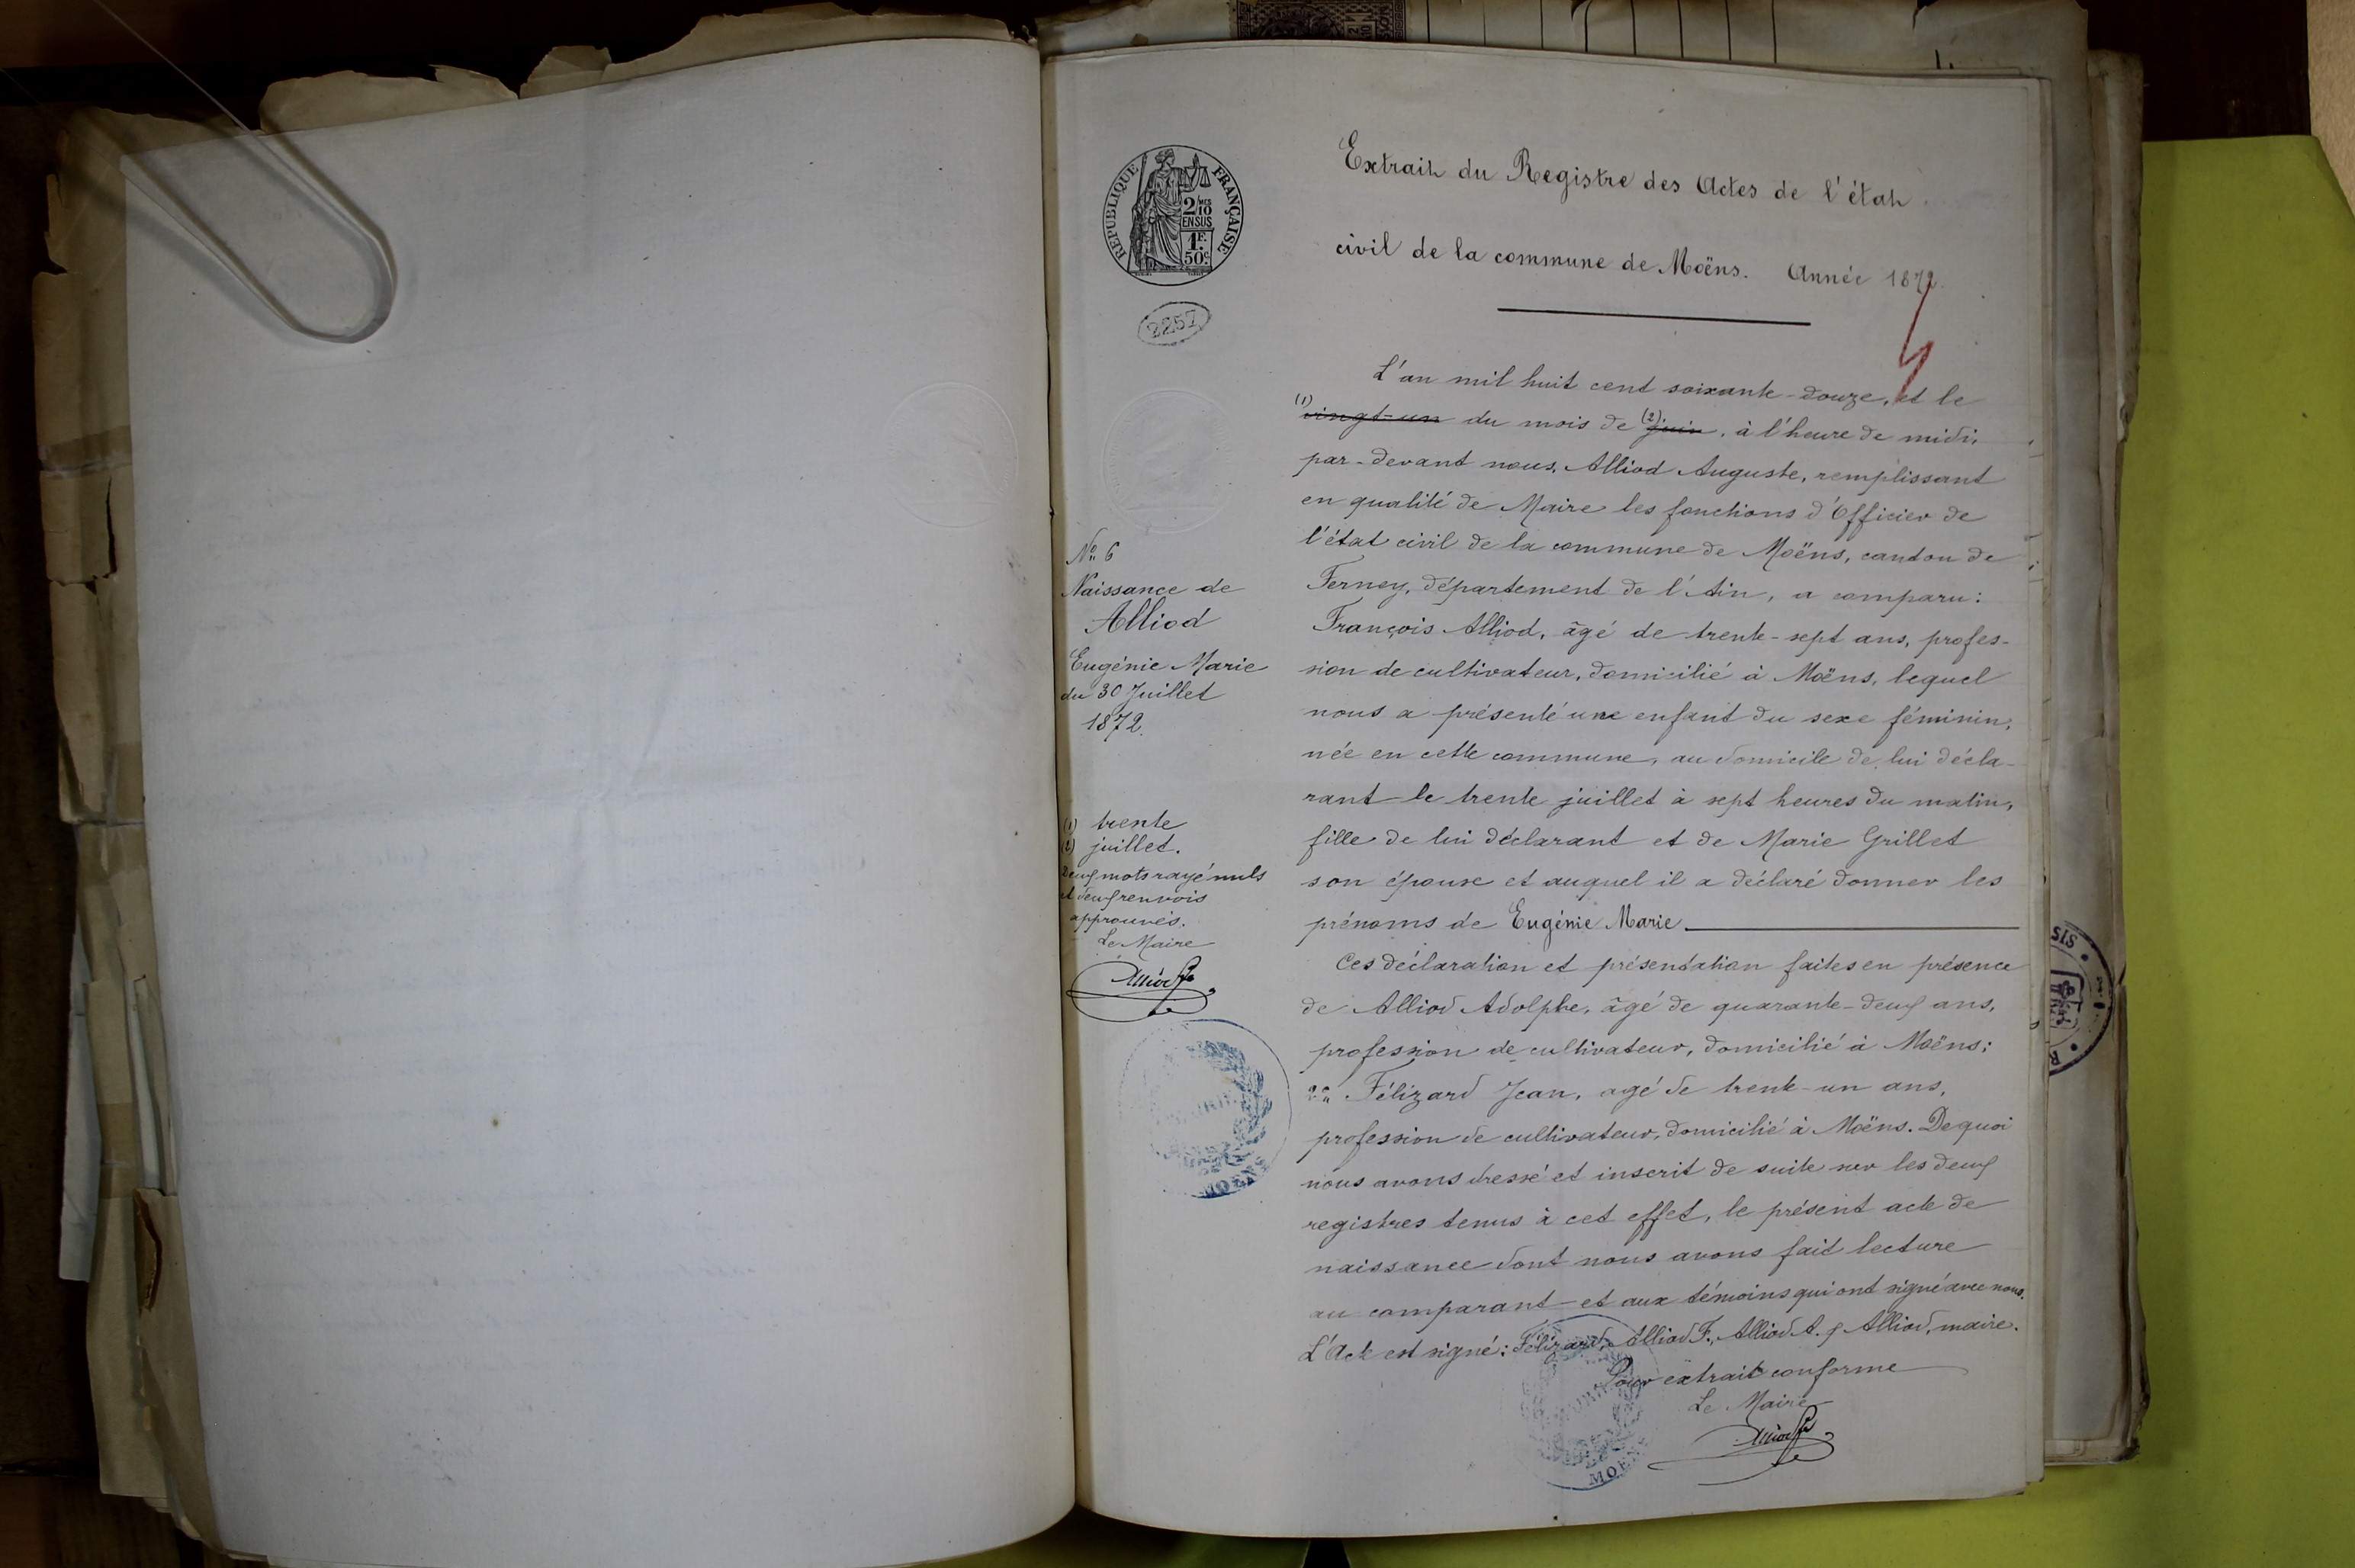 RÉPUBLIQUE FRANÇAISE
2/10 MES
EN SUS
1F.
50c.
2257
Extrait du Registre des Actes de l'état
civil de la commune de Moëns. Année 1872.
N° 6
Naissance de
Alliod
Eugénie Marie
du 30 Juillet
1872.
(1) trente
(2) juillet.
Deux mots rayé nuls
et deux renvois
approuvés.
Le Maire
Alliod
MOENS
L'an mil huit cent soixante-douze, et le
(1) vingt-un du mois de (2) juin, à l'heure de midi,
par-devant nous, Alliod Auguste, remplissant
en qualité de Maire les fonctions d'Officier de
l'état civil de la commune de Moëns, canton de
Ferney, département de l'Ain, a comparu:
François Alliod, âgé de trente-sept ans, profes-
sion de cultivateur, domicilié à Moëns, lequel
nous a présenté une enfant du sexe féminin,
née en cette commune, au domicile de lui décla-
rant le trente juillet à sept heures du matin,
fille de lui déclarant et de Marie Grillet
son épouse et auquel il a déclaré donner les
prénoms de Eugénie Marie.
Ces déclaration et présentation faites en présence
de Alliod Adolphe, âgé de quarante-deux ans,
profession de cultivateur, domicilié à Moëns;
2° Félizard Jean, agé de trente-un ans,
profession de cultivateur, domicilié à Moëns. De quoi
nous avons dressé et inscrit de suite sur les deux
registres tenus à cet effet, le présent acte de
naissance dont nous avons fait lecture
au comparant et aux témoins qui ont signé avec nous.
L'Acte est signé: Félizard, Alliod F., Alliod A. & Alliod, maire.
Pour extrait conforme
Le Maire
Alliod
MOENS